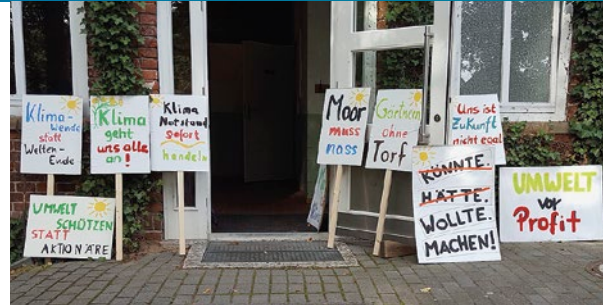 Klima-
Wende
statt
Welten-
Ende
Klima
geht
uns alle
an!
Klima
Notstand
sofort
handeln
UMWELT
SCHÜTZEN
STATT
AKTIONÄRE
Moor
muss
nass
Gärtnern
ohne
Torf
Uns ist
Zukunft
nicht egal
KÖNNTE.
HÄTTE.
WOLLTE.
MACHEN!
UMWELT
vor
Profit